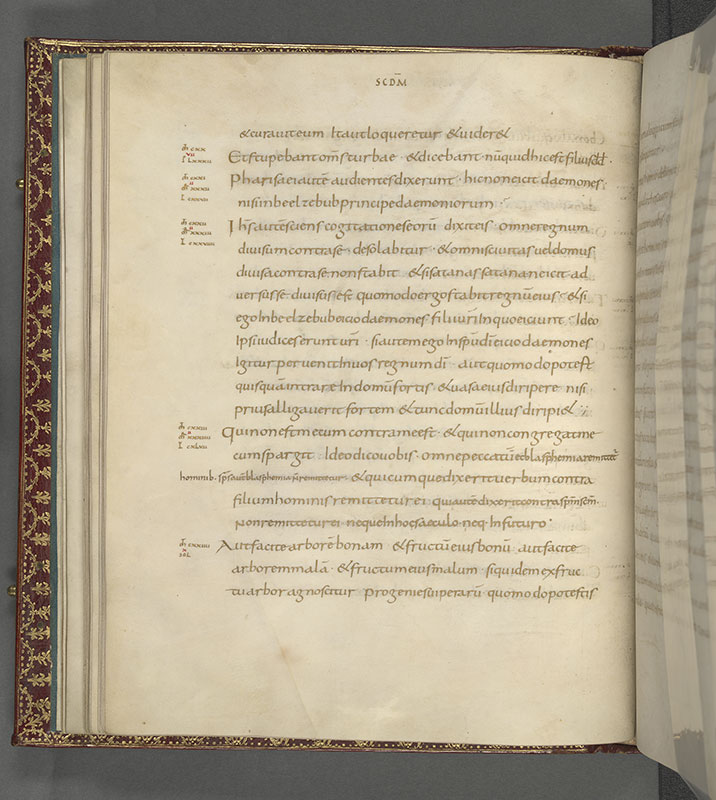 SCDM
& curavit eum Ita ut loqueretur & videret
Et stupebant oms turbae · & dicebant nuquid hic est filius dd
Pharisaei aute audientes dixerunt · hic non eicit daemones
nisi in beelzebub principe daemoniorum
Ihs aute sciens cogitationes eoru dixit eis omne regnum
divisum contra se desolabitur · & omnis civitas vel domus
divisa contra se non stabit & si satanas satanan eicit ad
versus se divisus est quomodo ergo stabit regnu eius · & si
ego In beelzebub eicio daemones filii uri In quo eiciunt · Ideo
Ipsi iudices erunt uri · si autem ego In spu di eicio daemones
Igitur pervenit In vos regnum di aut quomodo potest
quisqua intrare In domu fortis & vasa eius diripere nisi
prius alligaverit fortem & tunc domu illius diripiet
Qui non est mecum contra me est · & qui non congregat me
cum spargit · Ideo dico vobis · omne peccatu et blasphemia remittit
hominib · sps aute blasphemia n remittetur · & quicumque dixerit verbum contra
filium hominis remittetur ei qui aute dixerit contra spm scm
non remittetur ei neque In hoc saeculo neq In futuro
Aut facite arbore bonam & fructu eius bonu aut facite
arborem mala & fructum eius malum siquidem ex fruc
tu arbor agnoscitur progenies viperaru quomodo potestis